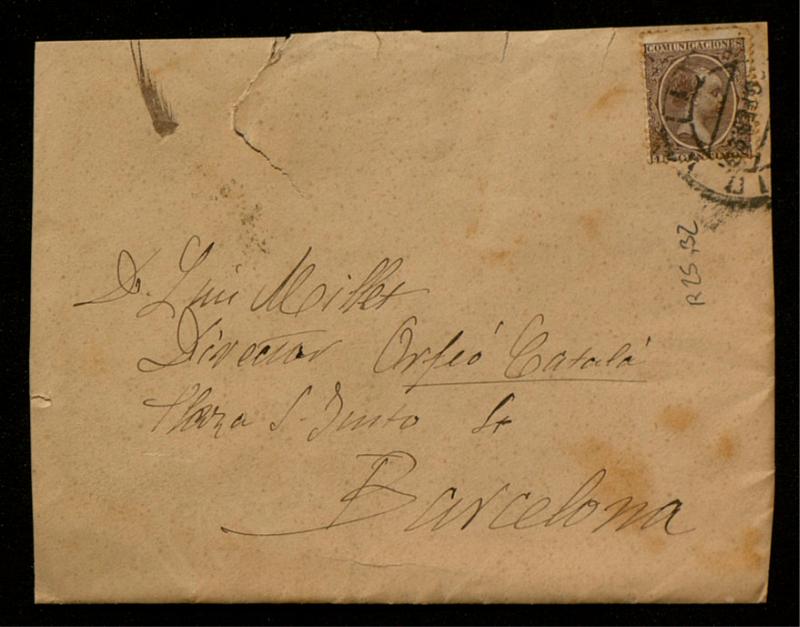 COMUNICACIONES
R 25,132
D. Luis Millet
Director Orfeó Catalá
Plaza S. Justo 4
Barcelona